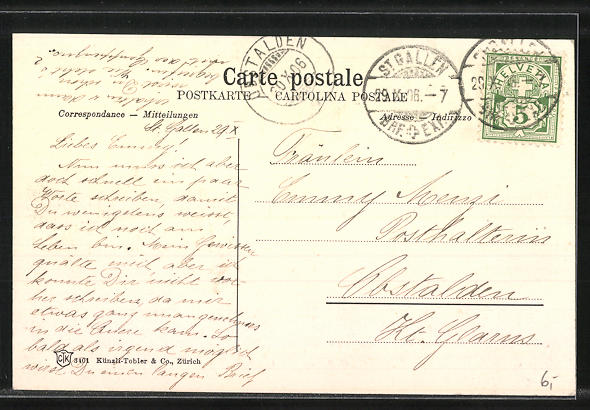 Carte postale
POSTKARTE CARTOLINA POSTALE
Correspondance — Mitteilungen
Adresse — Indirizzo
OBSTALDEN
30.X.06
ST. GALLEN
29.X.06.–7
BRF. EXP.
HELVETIA
5
St. Gallen 29. X
Liebes Emmy!
Nun muss ich aber
doch schnell ein paar
Worte schreiben, damit
Du wenigstens weisst,
dass ich noch am
Leben bin. Mein Gewissen
quälte mich, aber ich
konnte Dir nicht vor-
her schreiben, da mir
etwas ganz unangenehmes
in die Quere kam. So
bald als irgend möglich
wirst Du einen langen Brief
Fräulein
Emmy Menzi
Posthalterin
Obstalden
Kt. Glarus
CK 3401 Künzli-Tobler & Co., Zürich
6,-